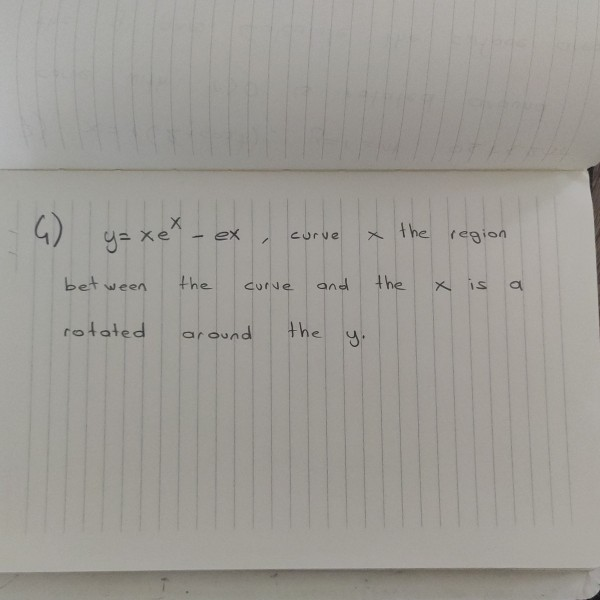 G) y = xeˣ - ex , curve x the region
between the curve and the x is a
rotated around the y.